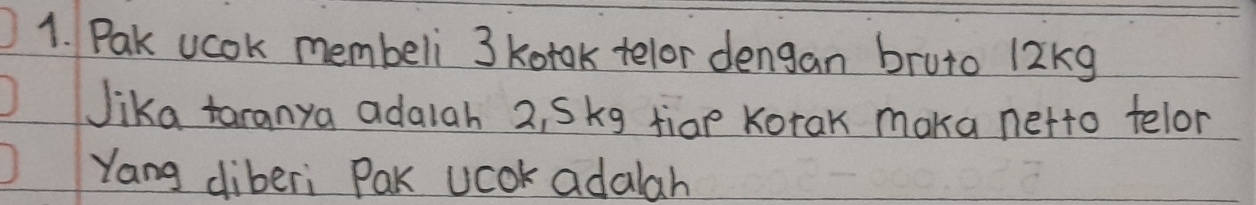 1. Pak ucok membeli 3 kotak telor dengan bruto 12kg
Jika taranya adalah 2,5 kg tiap kotak maka netto telor
Yang diberi Pak ucok adalah